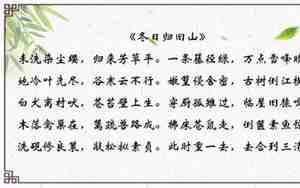 《冬日归旧山》
未洗染尘缨，归来芳草平。一条藤径绿，万点雪峰晴
地冷叶先尽，谷寒云不行。嫩篁侵舍密，古树倒江横
白犬离村吠，苍苔壁上生。穿厨孤雉过，临屋旧猿鸣
木落禽巢在，篱疏兽路成。拂床苍鼠走，倒箧素鱼惊
洗砚修良策，敲松拟素贞。此时重一去，去合到三清